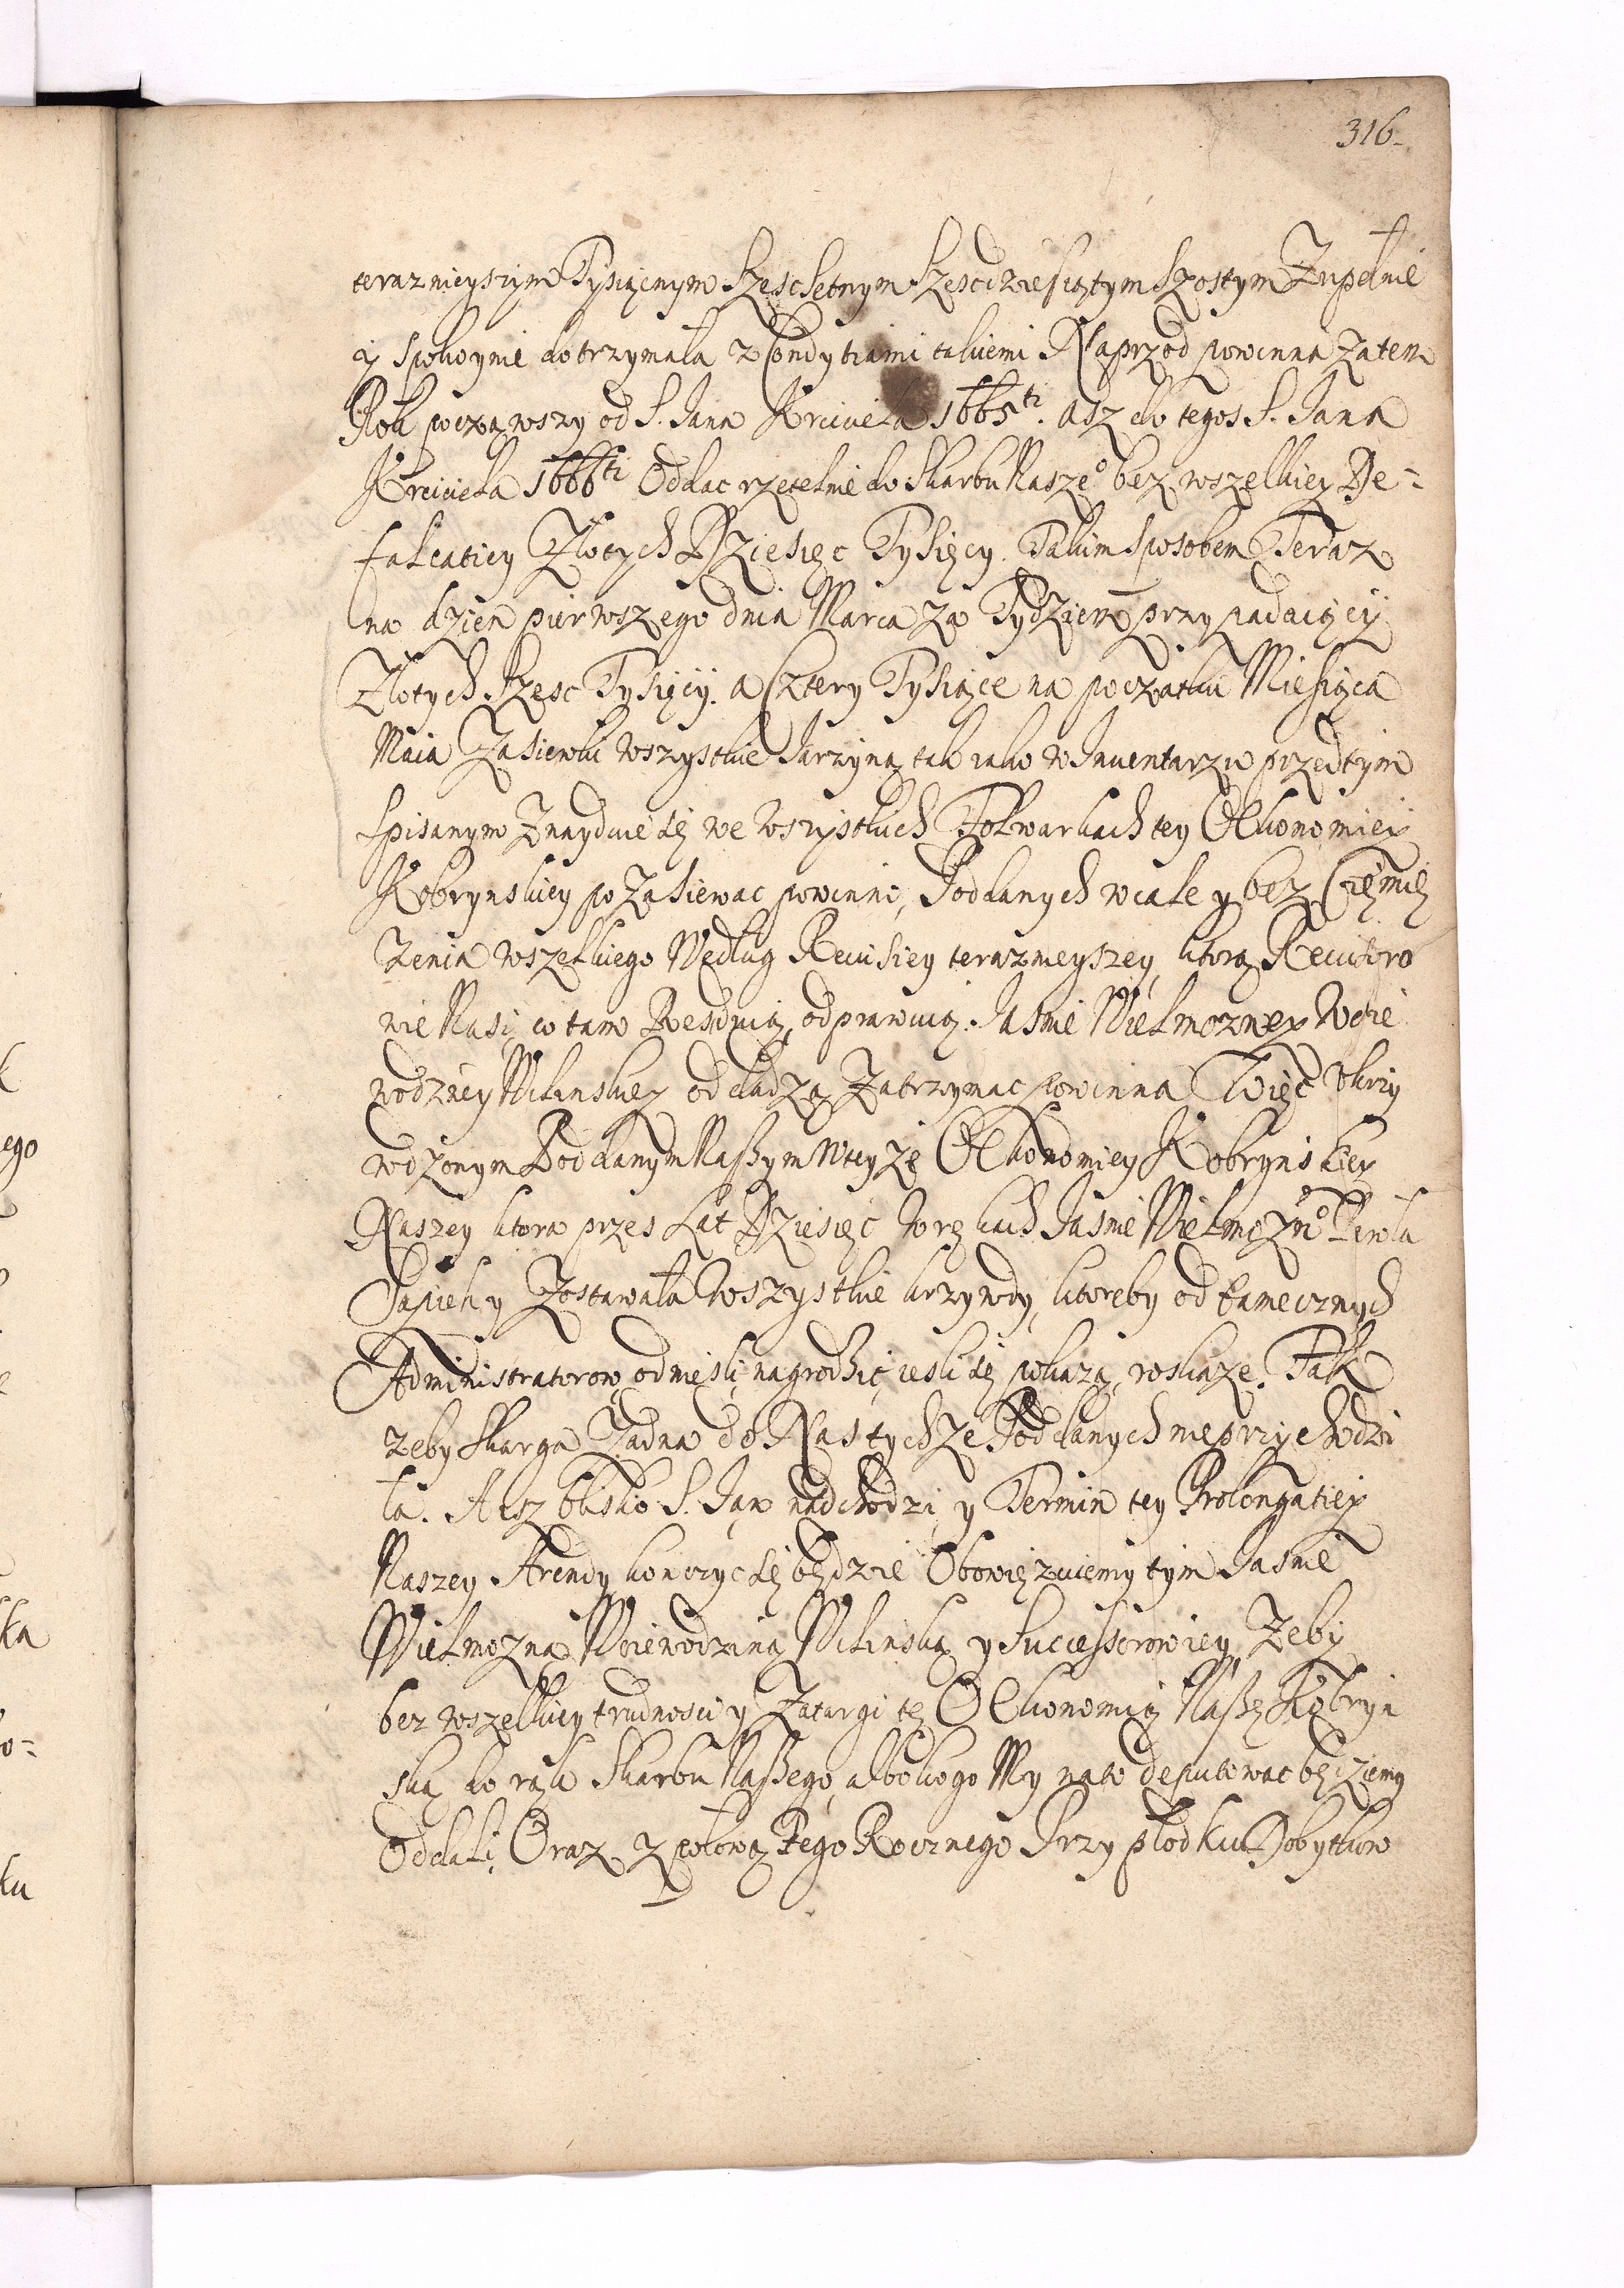 316.
teraznieyszym Tysiącnym Szescsetnym Szescdziesiątym Szostym Zupełnie
y spokoynie dotrzymała z Conditiami takiemi. Naprzod powinna za ten
Rok począwszy od S. Jana Krciciela 1665ti. asz do tegos S. Jana
Krciciela 1666ti Oddac rzetelnie do Skarbu Naszeo bez wszelkiey De=
falcatiey Złotych Dziesięc Tysięcy. Takim sposobem Teraz
na dzien pierwszego dnia Marca za Tydzien przypadaiący
Złotych Szesc Tysięcy. a Cztery Tysiące na początku Miesiąca
Maia Zasiewki wszystkie Jarzyną tak iako w Inuentarzu przedtym
spisanym Znayduie się we wszystkich Folwarkach tey Œkonomiey
Kobrynskiey pozasiewac powinni, Poddanych wcale y bez Ciemię
zenia wszelkiego Według Reuisiey terazneyszey, ktorą Reuizoro
wie Nasi, co tam Zesduią, odprawuią. Jasnie Wielmozney Woie
wodziney Wilenskiey od dadzą, Zatrzymac powinna Więc Vkrzy
wdzonym Poddanym Naßym w teyze Œkonomiey Kobrynskiey
Naszey ktora przes Lat Dziesięc w rękach Jasnie Wielmoznoo Pawła
Sapiehy Zostawała Wszystkie krzywdy, ktoreby od tamecznych
Administratorow, odniesli, nagrodzić, iesli się pokażą, roskaze. Tak
zeby Skarga Zadna do Nas tychze Poddanych nieprzychodzi
ła. A isz blisko S. Jan nadchodzi, y Termin tey Prolongatiey
Naszey Arendy konczyc się będzie Obowięzuiemy tym Jasnie
Wielmozną Woiewodziną Wilenską y Successorow iey, Zeby
bez wszelkiey trudnosci y Zatargi tę Œkonomią Naßę Kobryn
ską do rąk Skarbu Naßego, albo kogo My na to deputowac będziemy
Oddali, Oraz z połową Tego Rocznego Przypłodku Dobytkow